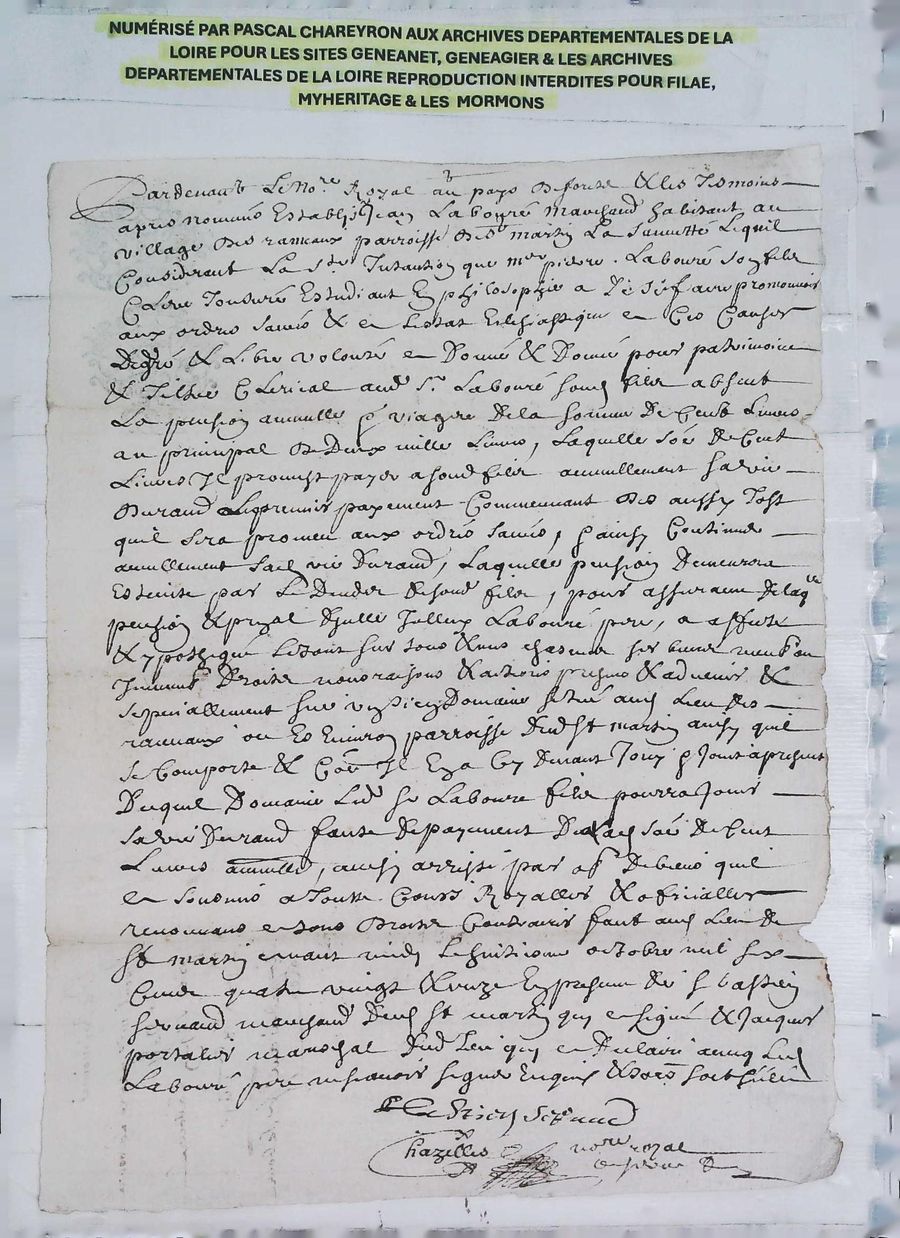 NUMÉRISÉ PAR PASCAL CHAREYRON AUX ARCHIVES DEPARTEMENTALES DE LA
LOIRE POUR LES SITES GENEANET, GENEAGIER & LES ARCHIVES
DEPARTEMENTALES DE LA LOIRE REPRODUCTION INTERDITES POUR FILAE,
MYHERITAGE & LES MORMONS
Pardevant Le No.re Royal au pays de forest & les tesmoins
apres nommés Estably Jean Labouré marchand habitant au
village des rameaux parroisse de st martin La Sauvetté Lequel
Considerant La s.te Intantion que m.re pierre Labouré son filz
Clerc Tonsuré Estudiant En philosophie a de se faire promouvoir
aux ordres sacrés & a Lestat Eclesiastique a Ces Causes
De gré & Libre volonté a Donné & Donne pour patrimoine
& Tiltre Clerical aud s.r Labouré son filz absent
La pension annuelle & viagere de la somme de Cent Livres
au principal de Deux mille Livres, Laquelle soe de Cent
Livres Il promet payer a sond filz annuellement sa vie
Durand Le premier payement Commencant des aussy tost
quil sera promeu aux ordres sacrés, & ainsy Continuer
annuellement sad vie Durand, Laquelle pension Demeurera
Esteinte par Le Deces de sond filz, pour assurance de laq.lle
pension & p.pal d'Icelle Ledit Labouré pere, a affecté
& ypothequé tous & uns chascuns ses biens meubles
Immeub. Droits noms raisons & actions presens & advenir &
specialement sur un sien Domaine scitué aud Lieu des
rameaux ou Es Environ parroisse dud st martin ainsy quil
se Comporte & Il En a Cy Devant Jouy & Jouit a present
Duquel Domaine Led s.r Labouré filz pourra Jouir
sa vie Durand faute de payement De lad soe de Cent
Livres annuelle, ainsy
a Toutes Cours Royalles & officialles
renonceant a tous Droits Contraires fait aud Lieu de
st martin avant midy Le huitieme octobre mil six
Cents quatre vingt & unze En presence de s.r bastien
marchand dud st martin qui a signé & Jacques
portalier mareschal dud Lieu qui a Declaré avecq Led
Labouré pere ne scavoir signer Enquis &
Chazelles no.re royal